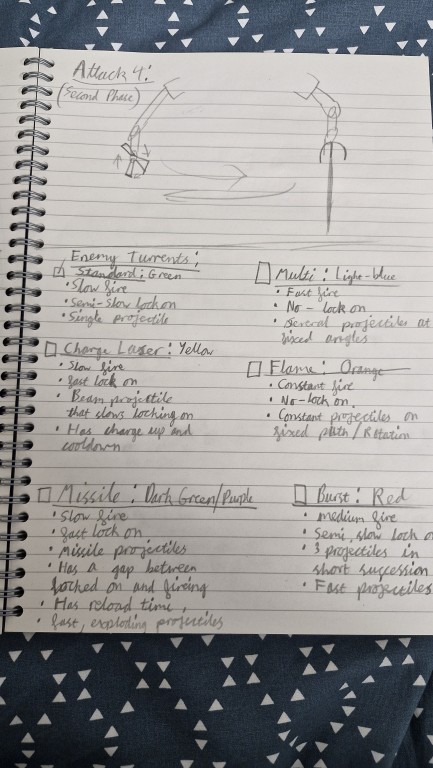 Attack 4:
(Second Phase)
Enemy Turrents:
Standard: Green
• Slow fire
• Semi-slow lock on
• Single projectile
Multi: Light-blue
• Fast fire
• No - lock on
• Several projectiles at
fixed angles
Charge Lazer: Yellow
• Slow fire
• fast lock on
• Beam projectile
that slows locking on
• Has charge up and
cooldown
Flame: Orange
• Constant fire
• No-lock on.
• Constant projectiles on
fixed path/Rotation
Missile: Dark Green/Purple
• Slow fire
• fast lock on
• Missile projectiles
• Has a gap between
locked on and fireing
• Has reload time,
• fast, exploding projectiles
Burst: Red
• medium fire
• Semi, slow lock on
• 3 projectiles in
short succession
• Fast projectiles